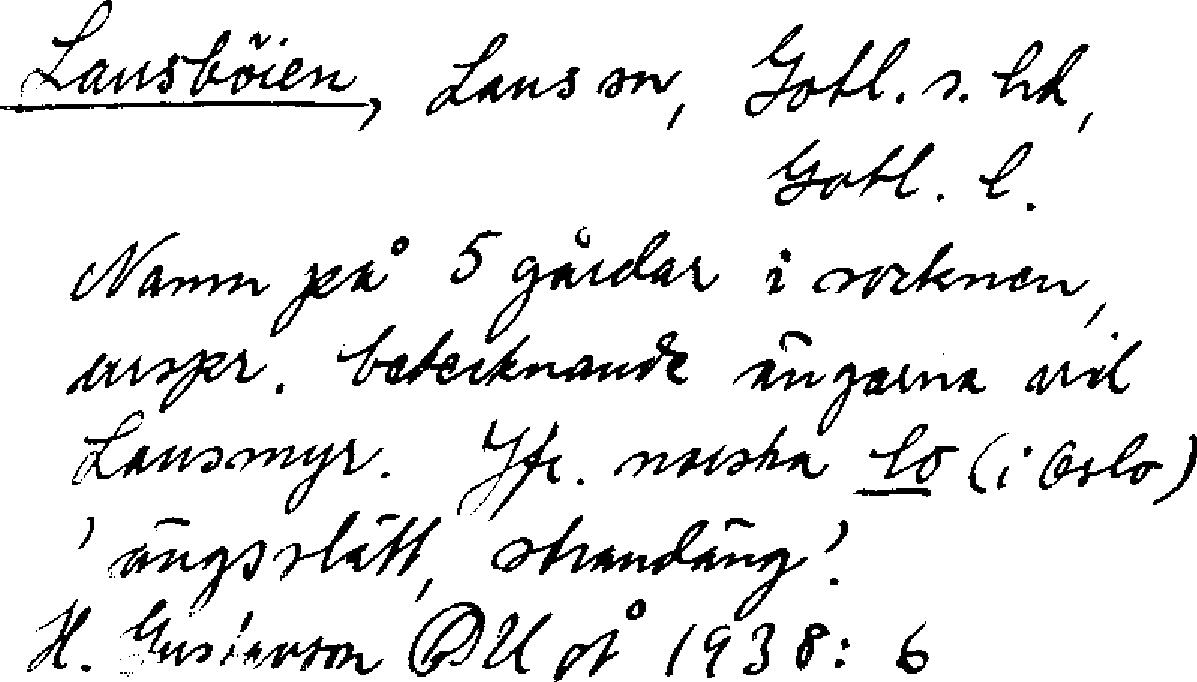 Lausböien, Laus sn, Gotl. s. hd,
Gotl. l.
Namn på 5 gårdar i socknen,
urspr. betecknande ängarna vid
Lausmyr. Jfr. norska lo (i Oslo)
'ängsslätt, strandäng'.
H. Gustavson OUÅ 1938: 6